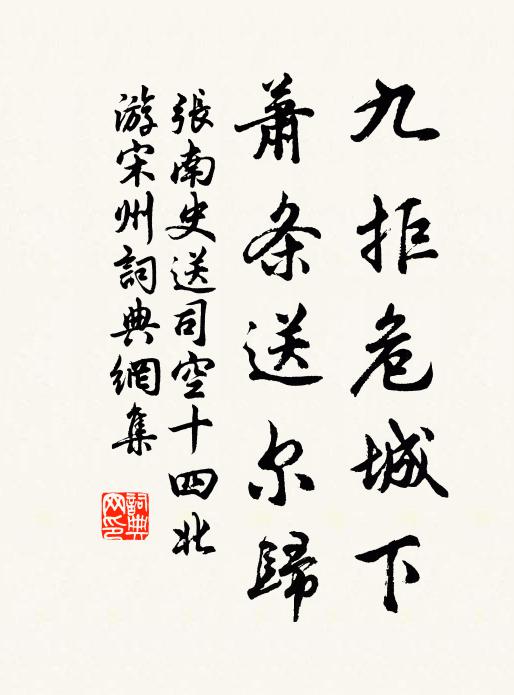 九拒危城下
萧条送尔歸
張南史送司空十四北
游宋州詞典網集
詞典
网印